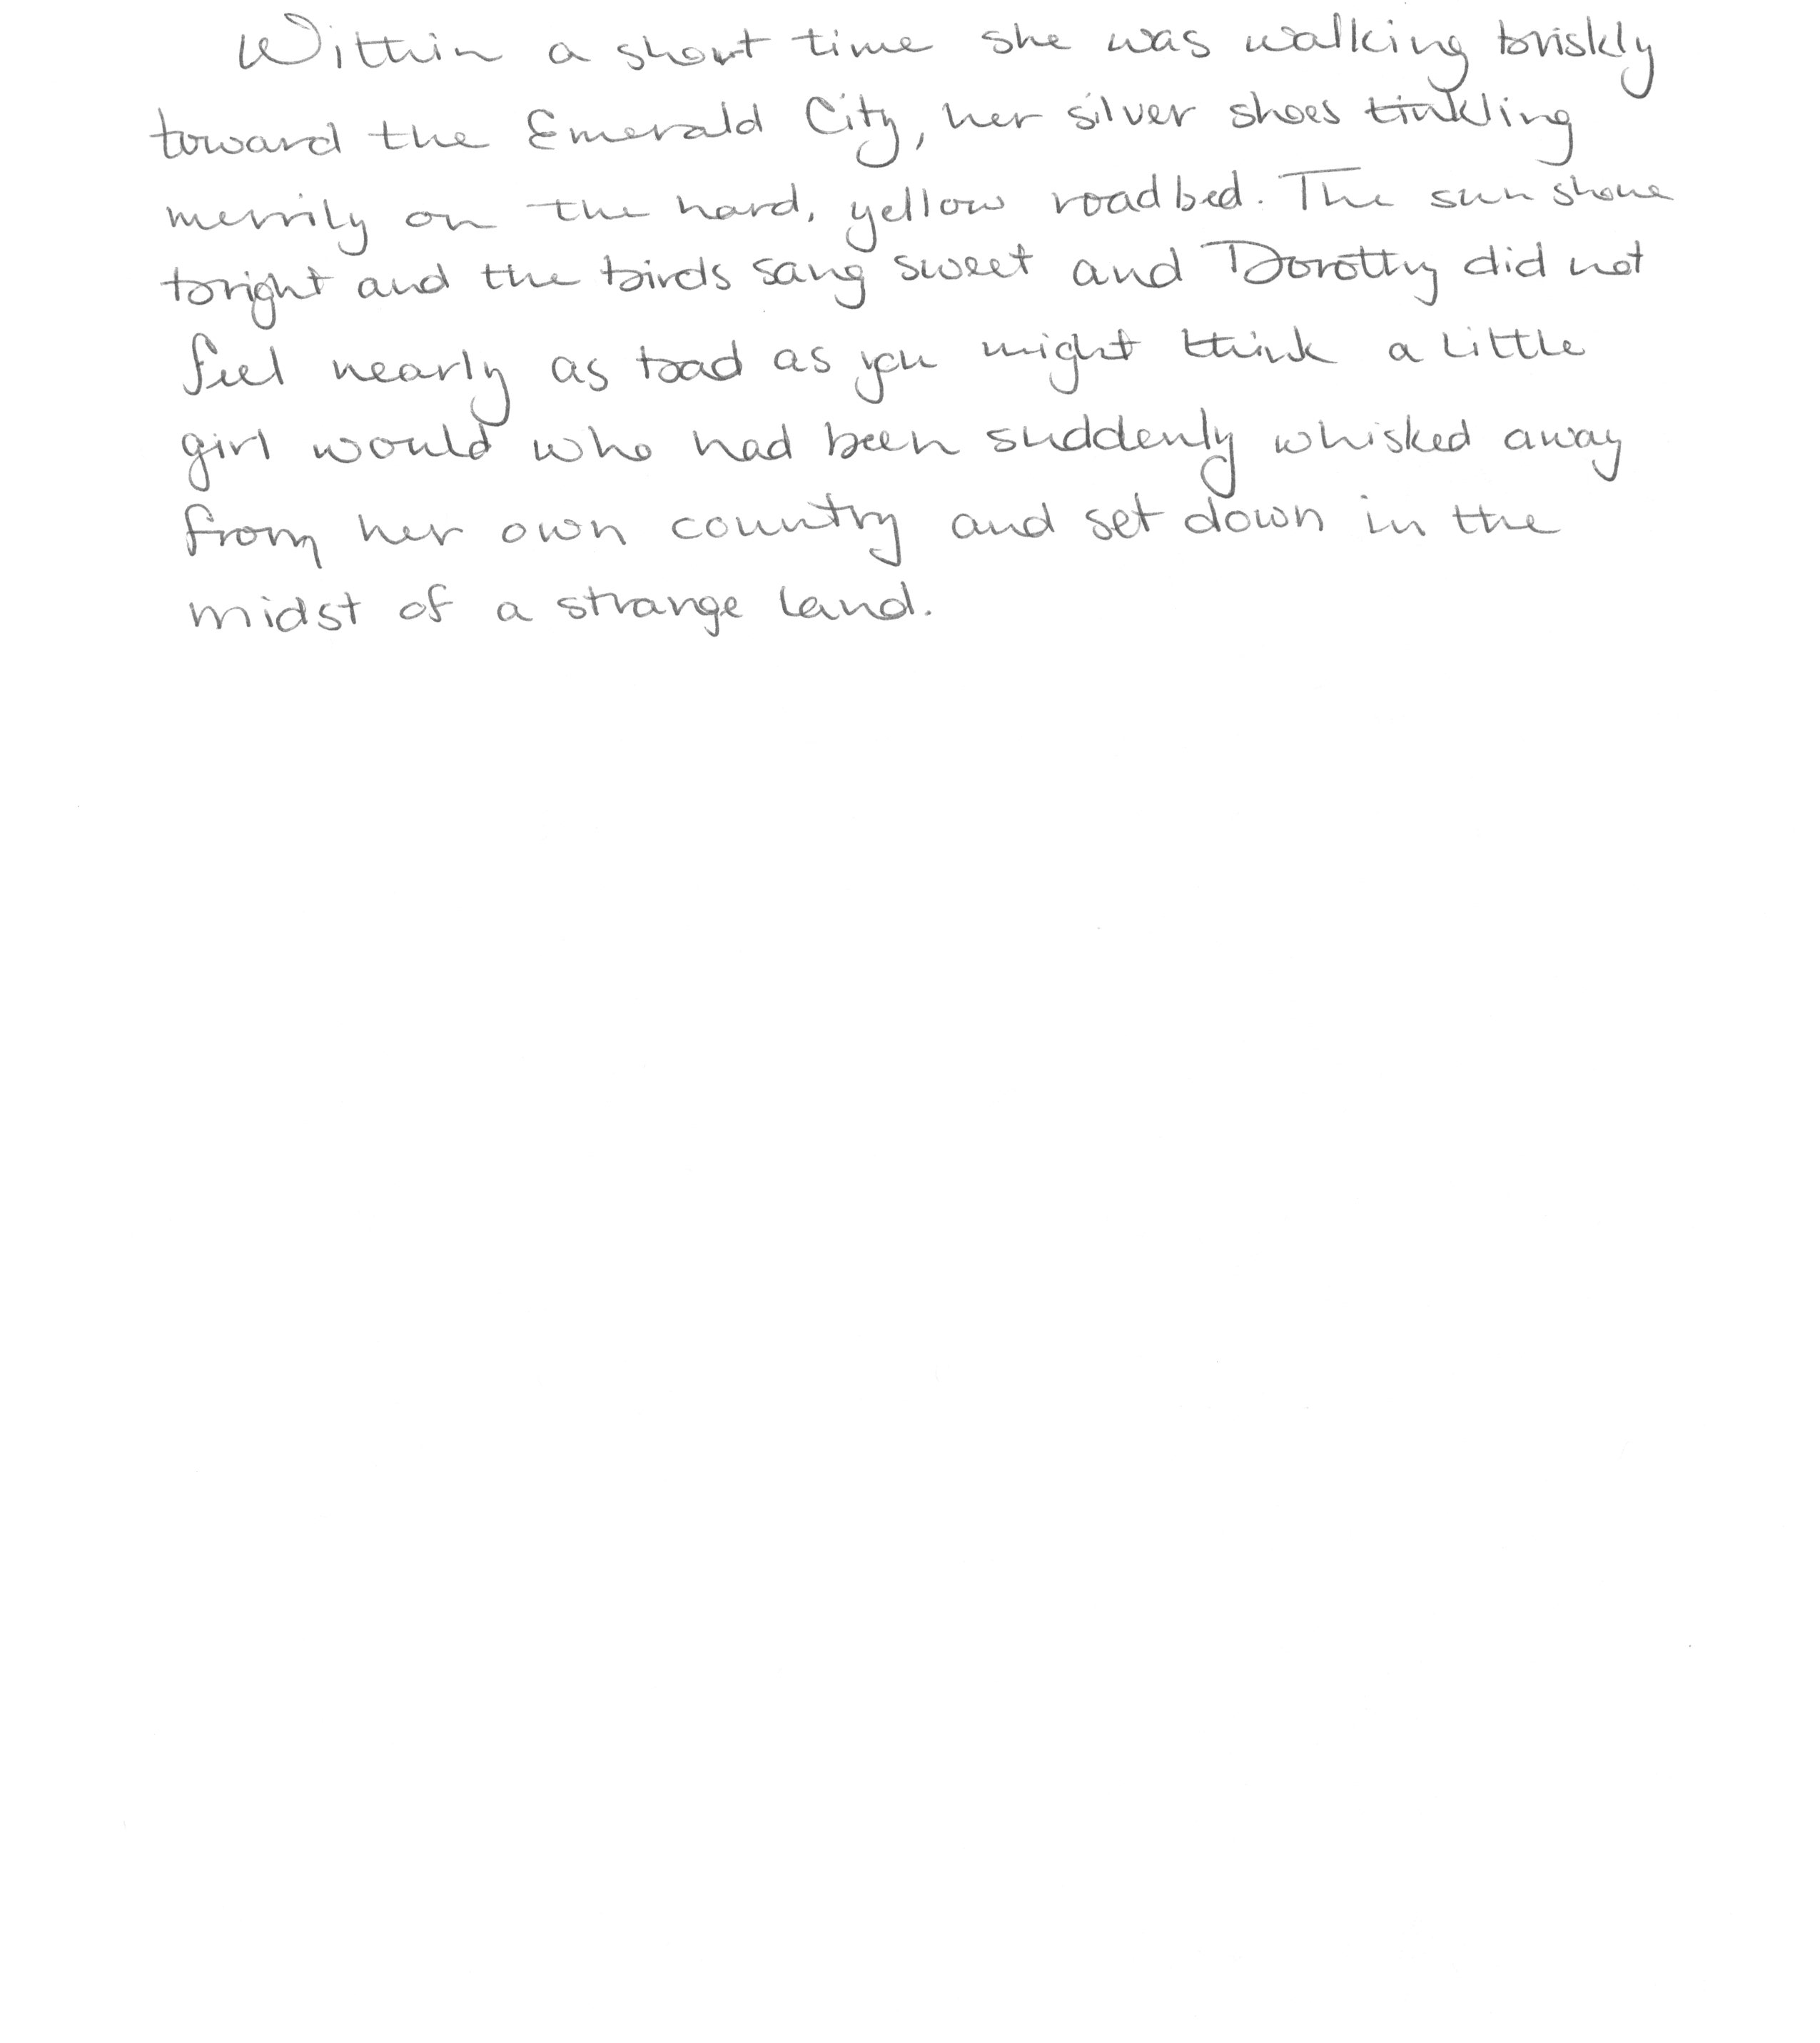 Within a short time she was walking briskly
toward the Emerald City, her silver shoes tinkling
merrily on the hard, yellow roadbed. The sun shone
bright and the birds sang sweet and Dorothy did not
feel nearly as bad as you might think a little
girl would who had been suddenly whisked away
from her own country and set down in the
midst of a strange land.